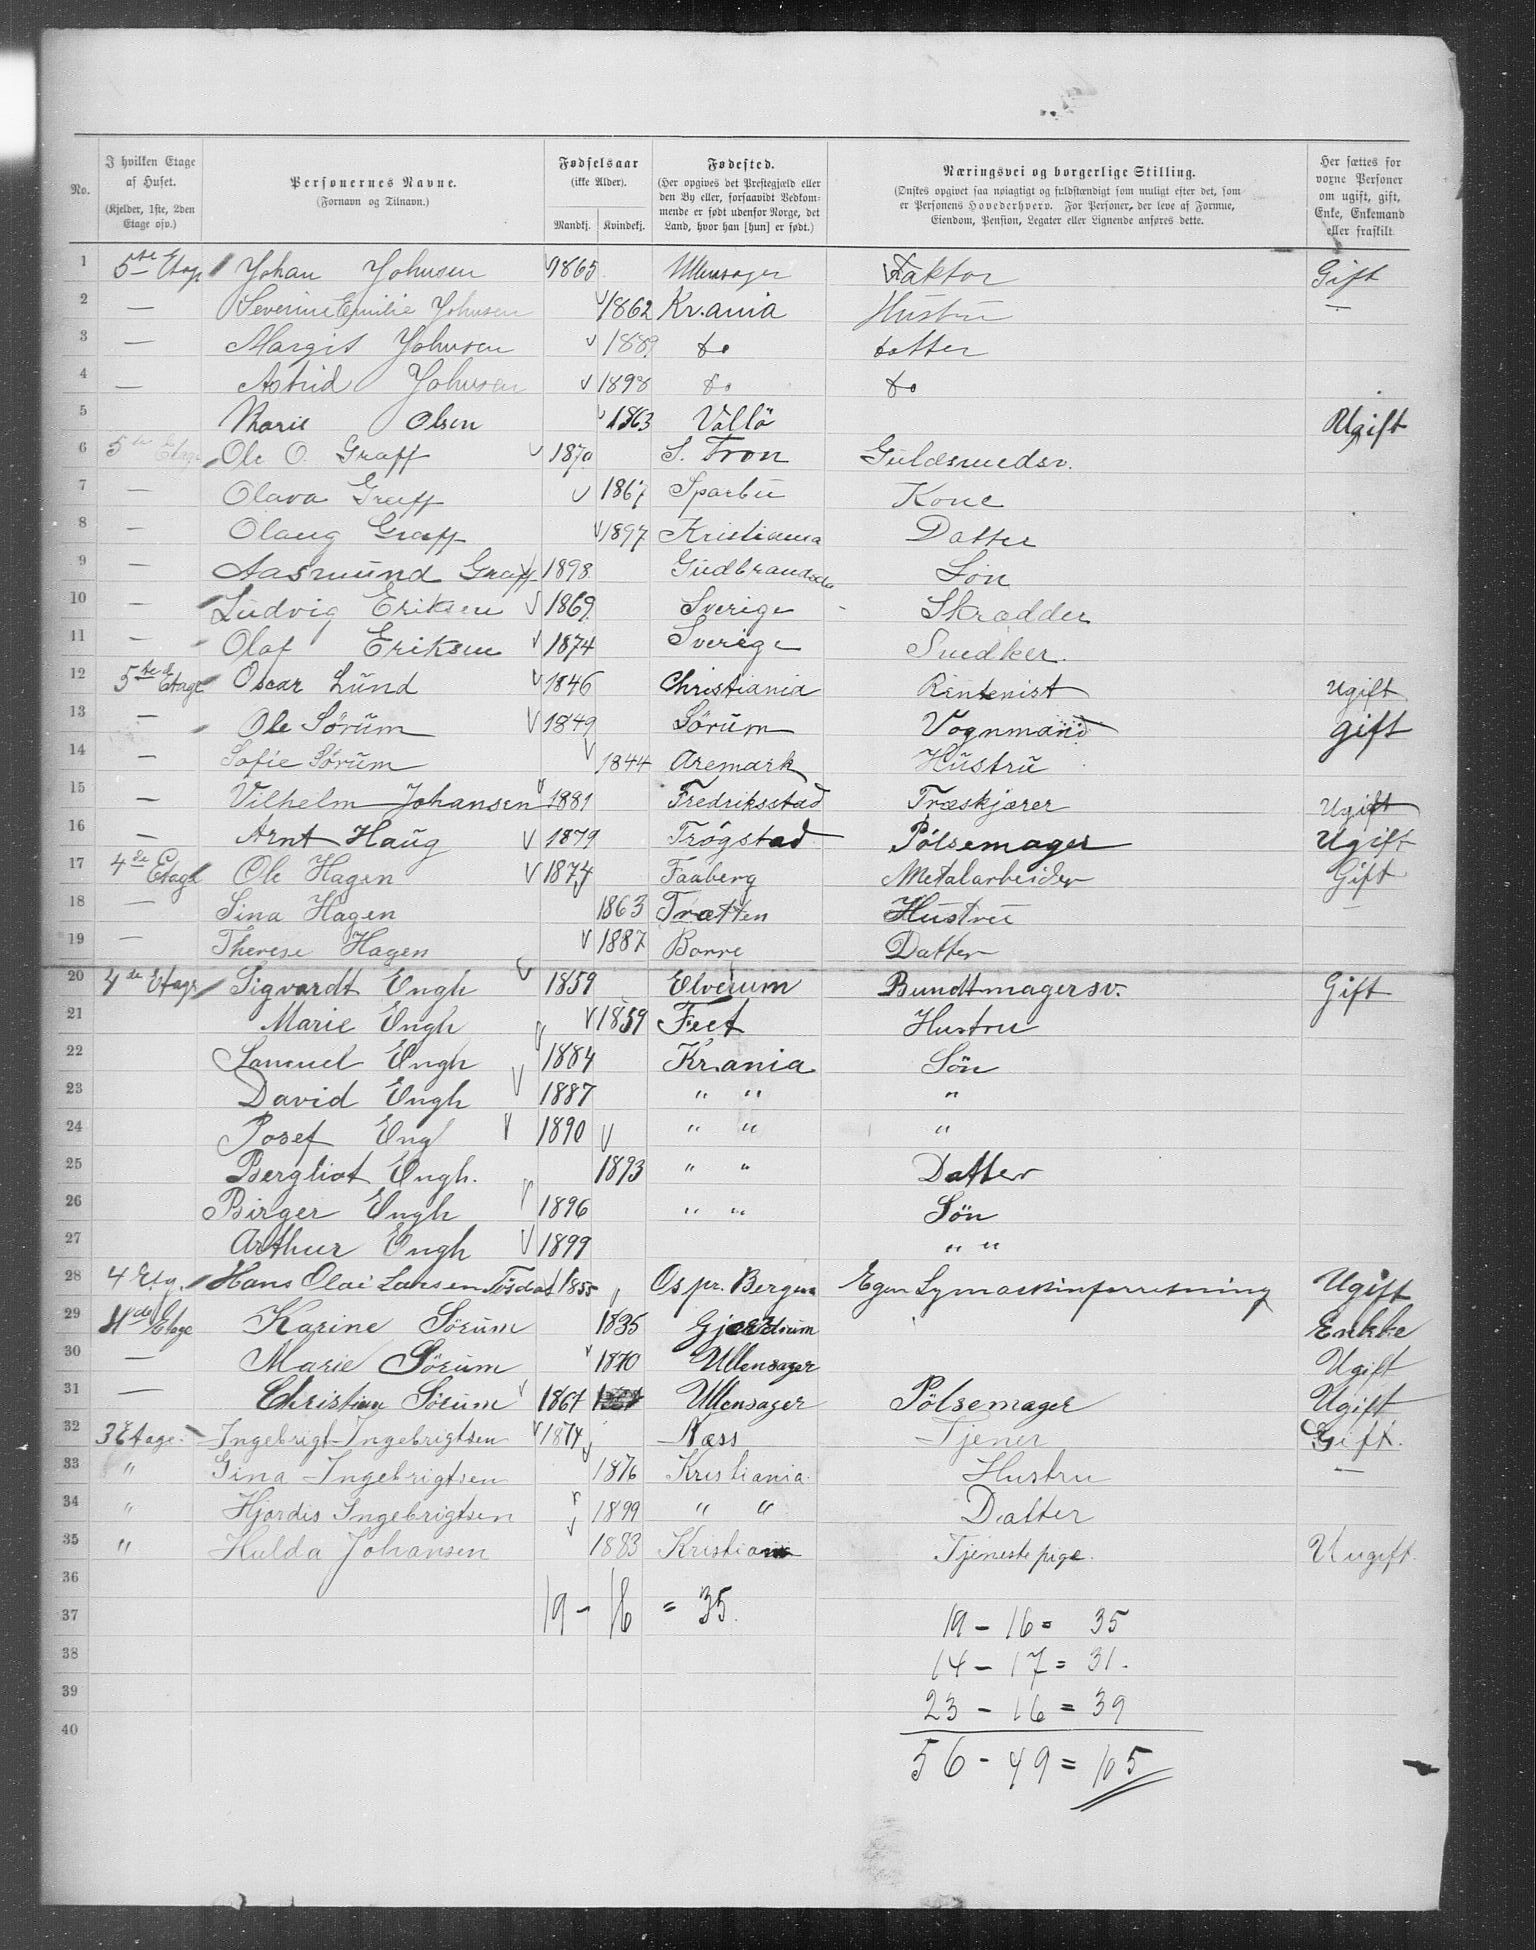 No. | I hvilken Etage af Huset. (Kjelder, 1ste, 2den Etage osv.) | Personernes Navne. (Fornavn og Tilnavn.) | Fødselsaar (ikke Alder). Mandkj. | Kvindekj. | Fødested. (Her opgives det Prestegjæld eller den By eller, forsaavidt Vedkommende er født udenfor Norge, det Land, hvor han [hun] er født.) | Næringsvei og borgerlige Stilling. (Ønskes opgivet saa nøiagtigt og fuldstændigt som muligt efter det, som er Personens Hovederhverv. For Personer, der leve af Formue, Eiendom, Pension, Legater eller Lignende anføres dette. | Her sættes for voxne Personer om ugift, gift, Enke, Enkemand eller fraskilt.
1 5te Etage Johan Johnsen 1865 Ullensager Faktor Gift
2 — Severine Emilie Johnsen 1862 Kr.ania Hustru —
3 — Margit Johnsen 1889 do datter
4 — Astrid Johnsen 1898 do do
5 Marie Olsen 1863 Vallö Ugift
6 5te Etage Ole O. Graff 1870 S. Fron Guldsmedsv.
7 — Olava Graff 1867 Sparbu Kone
8 — Olaug Graff 1897 Kristiania Datter
9 — Aasmund Graff 1898 Gudbrandsda Søn
10 — Ludvig Eriksen 1869 Sverige - Skrædder
11 — Olaf Eriksen 1874 Sverige Snedker.
12 5te Etage Oscar Lund 1846 Christiania Rentenist Ugift
13 — Ole Sørum 1849 Sørum Vognmand gift
14 — Sofie Sørum 1844 Aremark Hustru
15 — Vilhelm Johansen 1881 Fredriksstad Træskjærer Ugift
16 — Arnt Haug 1879 Trøgstad Pölsemager Ugift
17 4de Etage Ole Hagen 1874 Faaberg Metalarbeider Gift
18 — Sina Hagen 1863 Tratten Hustru —
19 — Therese Hagen 1887 Borre Datter
20 4de Etage Sigvardt Engh 1859 Elverum Bundtmagersv. Gift
21 Marie Engh 1859 Feet Hustru
22 Samuel Engh 1884 Kr.ania Sön
23 David Engh 1887 " " "
24 Josef Engh 1890 " " "
25 Bergliot Engh. 1893 " " Datter
26 Birger Engh 1896 " " Sön
27 Arthur Engh 1899 " "
28 4 Etg. Hans Olai Larsen 1855 Os pr. Bergen Egen Symaskinforretning Ugift
29 4de Etage Karine Sörum 1835 Gjerdrum Enkke
30 — Marie Sörum 1870 Ullensager Ugift
31 — Christian Sörum 1867 Ullensager Pölsemager Ugift
32 3 Etage. Ingebrigt Ingebrigtsen 1874 Næss Tjener Gift.
33 " Gina Ingebrigtsen 1876 Kristiania Hustru —
34 " Hjordis Ingebrigtsen 1899 " " Datter
35 " Hulda Johansen 1883 Kristiania Tjenestepige. Uugift.
36
37 19 - 16 = 35. 19 - 16 = 35
38 14 - 17 = 31.
39 23 - 16 = 39
40 56 - 49 = 105